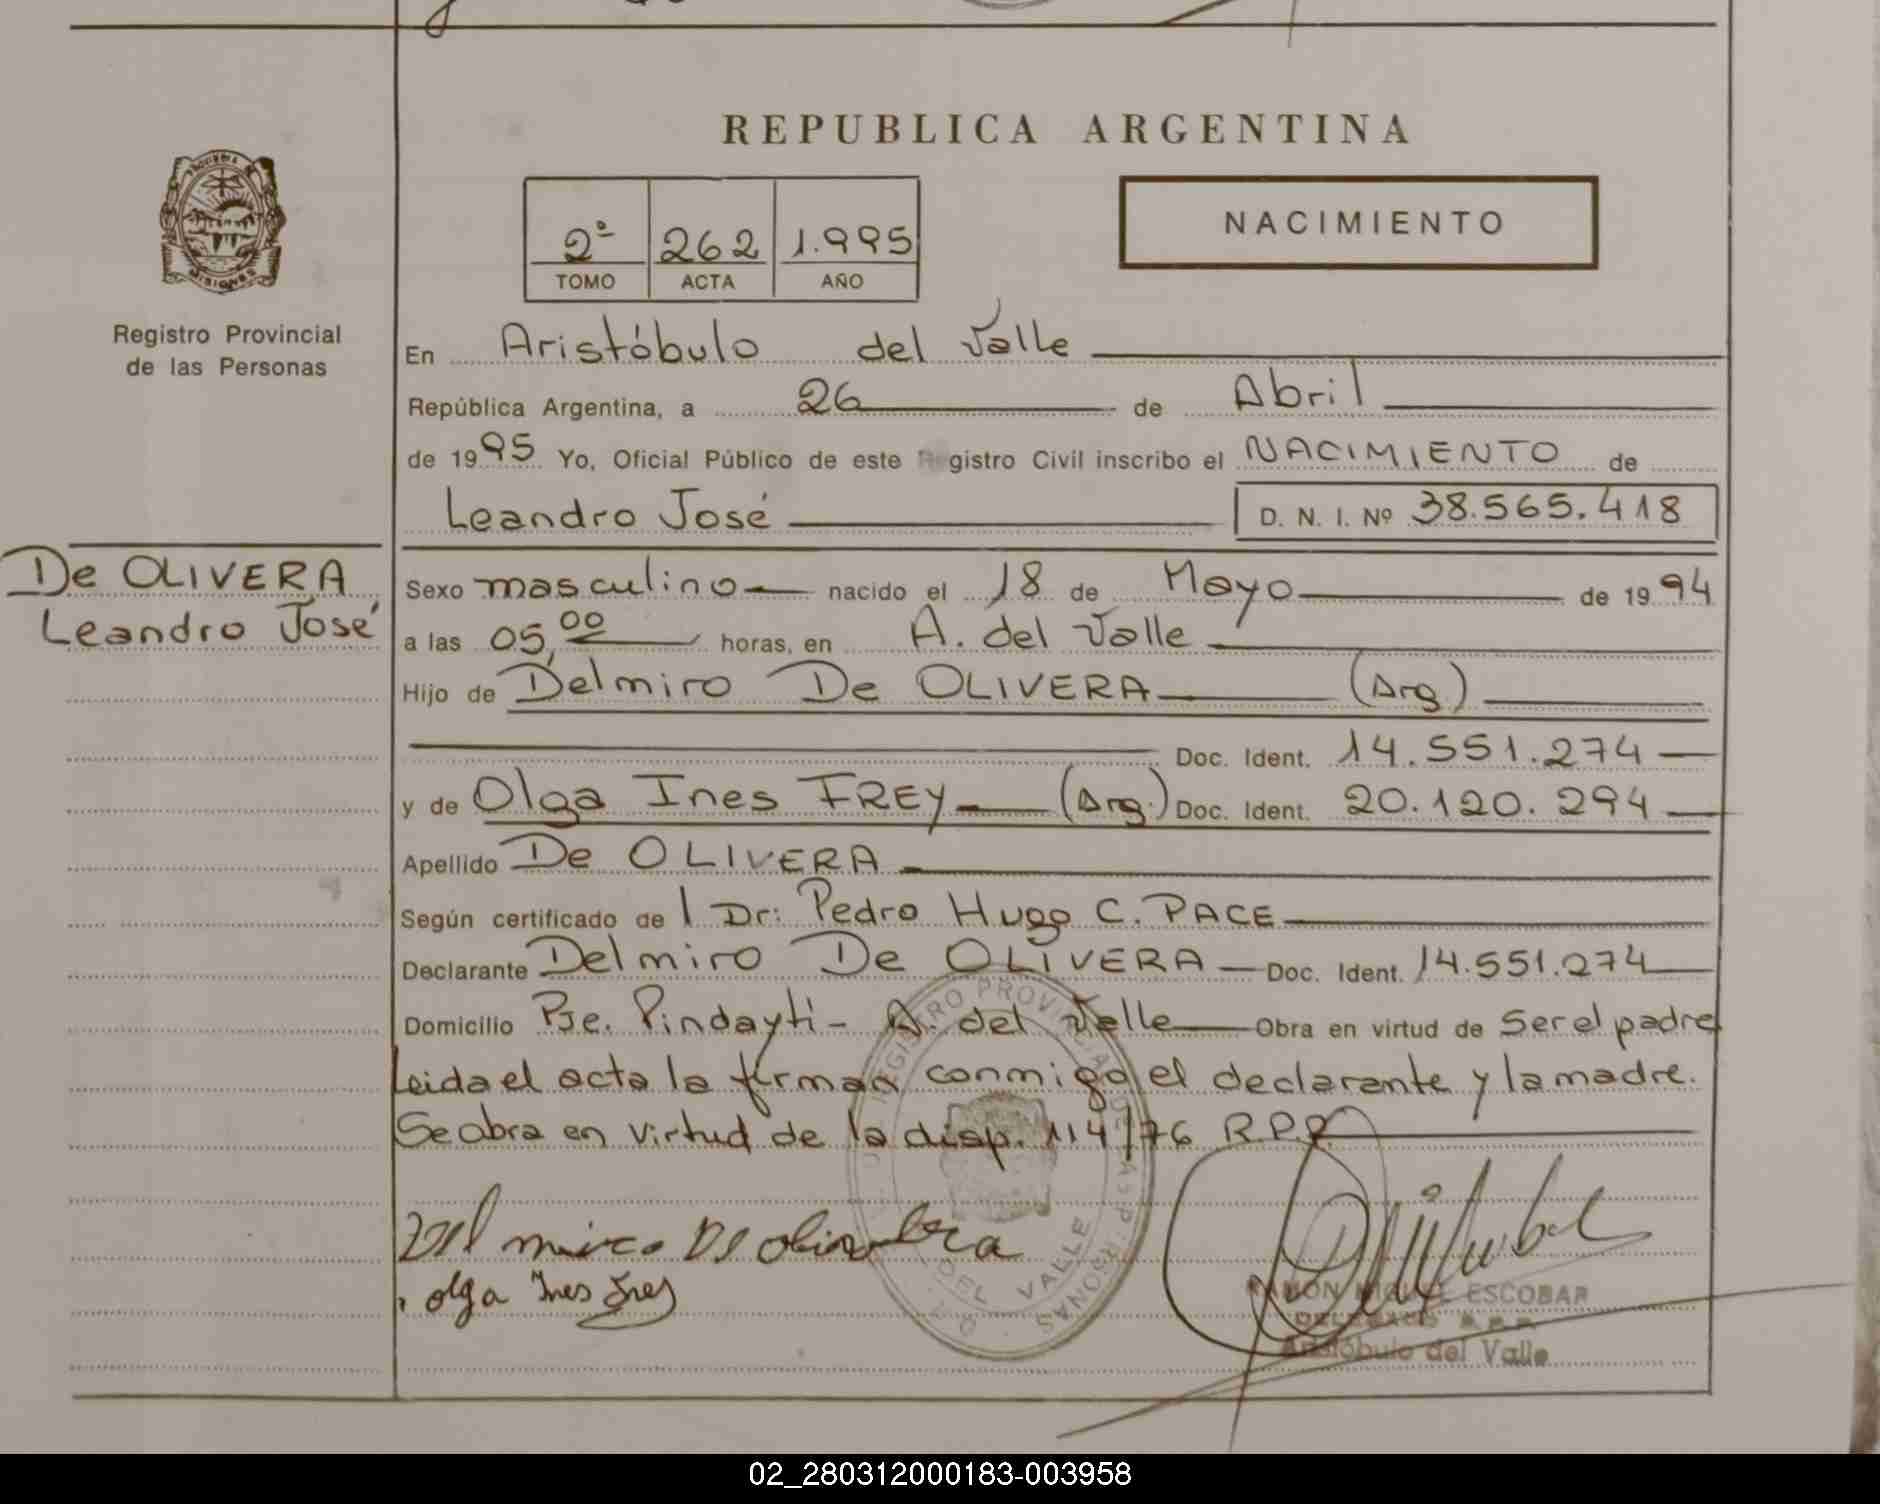 REPUBLICA ARGENTINA
NACIMIENTO
2º 262 1.995
TOMO ACTA AÑO
PROVINCIA DE
MISIONES
Registro Provincial
de las Personas
De OLIVERA
Leandro José
En Aristóbulo del Valle
República Argentina, a 26 de Abril
de 1995 Yo, Oficial Público de este Registro Civil inscribo el NACIMIENTO de
Leandro José D. N. I. Nº 38.565.418
Sexo masculino nacido el 18 de Mayo de 1994
a las 05,00 horas, en A. del Valle
Hijo de Delmiro De OLIVERA (Arg.)
Doc. Ident. 14.551.274
y de Olga Ines FREY (Arg.) Doc. Ident. 20.120.294
Apellido De OLIVERA
Según certificado de l Dr: Pedro Hugo C. PACE
Declarante Delmiro De OLIVERA Doc. Ident. 14.551.274
Domicilio Pje. Pindayti - A. del Valle Obra en virtud de ser el padre
Leida el acta la firman conmigo el declarante y la madre.
Se obra en virtud de la disp. 114/76 R.P.P.
REGISTRO PROVINCIAL DE LAS PERSONAS
DEL VALLE
Olga Ines Frey
RAMÓN MIGUEL ESCOBAR
Aristóbulo del Valle
02_280312000183-003958